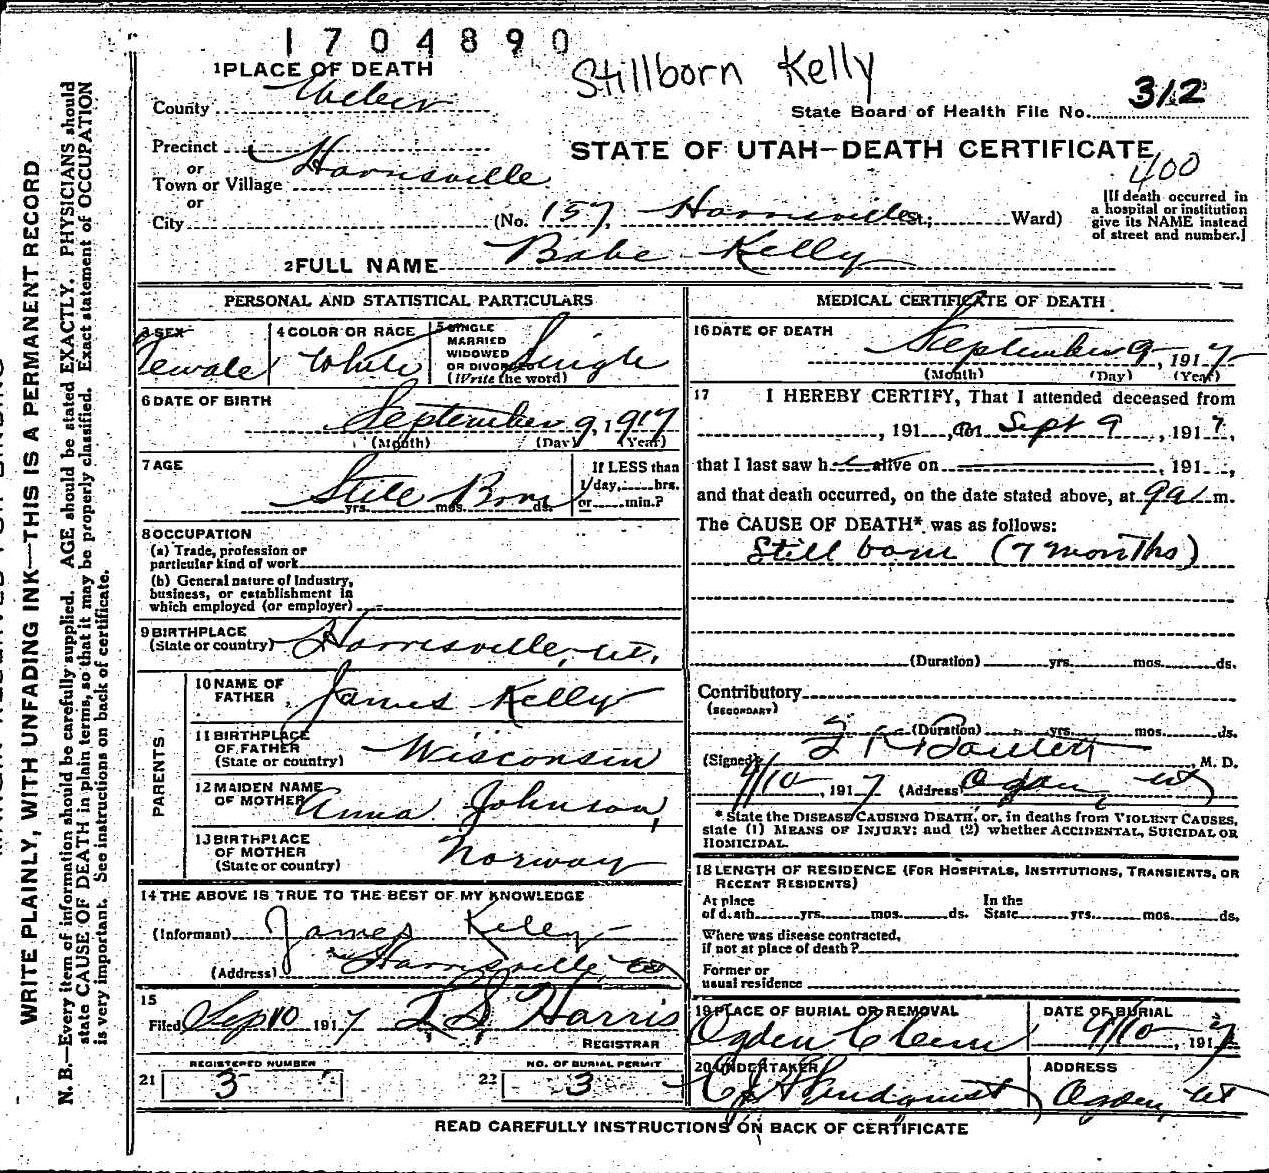 1704890
Stillborn Kelly
1 PLACE OF DEATH
County Weber
State Board of Health File No. 312
Precinct
or
Town or Village Harrisville
or
City
STATE OF UTAH—DEATH CERTIFICATE
400
(No. 157, Harrisville St.; Ward)
[If death occurred in
a hospital or institution
give its NAME instead
of street and number.]
2 FULL NAME Babe Kelly
PERSONAL AND STATISTICAL PARTICULARS
3 SEX
Female
4 COLOR OR RACE
White
5 SINGLE
MARRIED
WIDOWED
OR DIVORCED
(Write the word)
Single
6 DATE OF BIRTH
September 9, 1917
(Month) (Day) (Year)
7 AGE
Still Born
yrs. mos. ds.
If LESS than
1 day, hrs.
or min.?
8 OCCUPATION
(a) Trade, profession or
particular kind of work
(b) General nature of Industry,
business, or establishment in
which employed (or employer)
9 BIRTHPLACE
(State or country) Harrisville, Ut.
PARENTS
10 NAME OF
FATHER James Kelly
11 BIRTHPLACE
OF FATHER
(State or country) Wisconsin
12 MAIDEN NAME
OF MOTHER Anna Johnson,
13 BIRTHPLACE
OF MOTHER
(State or country) Norway
14 THE ABOVE IS TRUE TO THE BEST OF MY KNOWLEDGE
(Informant) James Kelly
(Address) Harrisville
15
Filed Sep 10 1917 L S Harris
REGISTRAR
REGISTERED NUMBER
21 3
NO. OF BURIAL PERMIT
22 3
MEDICAL CERTIFICATE OF DEATH
16 DATE OF DEATH
September 9 1917
(Month) (Day) (Year)
17 I HEREBY CERTIFY, That I attended deceased from
, 191 , on Sept 9 , 1917,
that I last saw h alive on , 191 ,
and that death occurred, on the date stated above, at 9 a. m.
The CAUSE OF DEATH* was as follows:
Still born (7 months)
(Duration) yrs. mos. ds.
Contributory
(SECONDARY)
(Duration) yrs. mos. ds.
(Signed) M. D.
9/10 , 1917 (Address) Ogden Ut
* State the DISEASE CAUSING DEATH, or, in deaths from VIOLENT CAUSES,
state (1) MEANS OF INJURY; and (2) whether ACCIDENTAL, SUICIDAL OR
HOMICIDAL.
18 LENGTH OF RESIDENCE (FOR HOSPITALS, INSTITUTIONS, TRANSIENTS, OR
RECENT RESIDENTS)
At place
of death yrs. mos. ds.
In the
State yrs. mos. ds.
Where was disease contracted,
if not at place of death?
Former or
usual residence
19 PLACE OF BURIAL OR REMOVAL
Ogden Cem
DATE OF BURIAL
9/10 , 1917
20 UNDERTAKER
ADDRESS
Ogden, Ut
READ CAREFULLY INSTRUCTIONS ON BACK OF CERTIFICATE
WRITE PLAINLY, WITH UNFADING INK—THIS IS A PERMANENT RECORD
N. B.—Every item of information should be carefully supplied. AGE should be stated EXACTLY. PHYSICIANS should
state CAUSE OF DEATH in plain terms, so that it may be properly classified. Exact statement of OCCUPATION
is very important. See instructions on back of certificate.